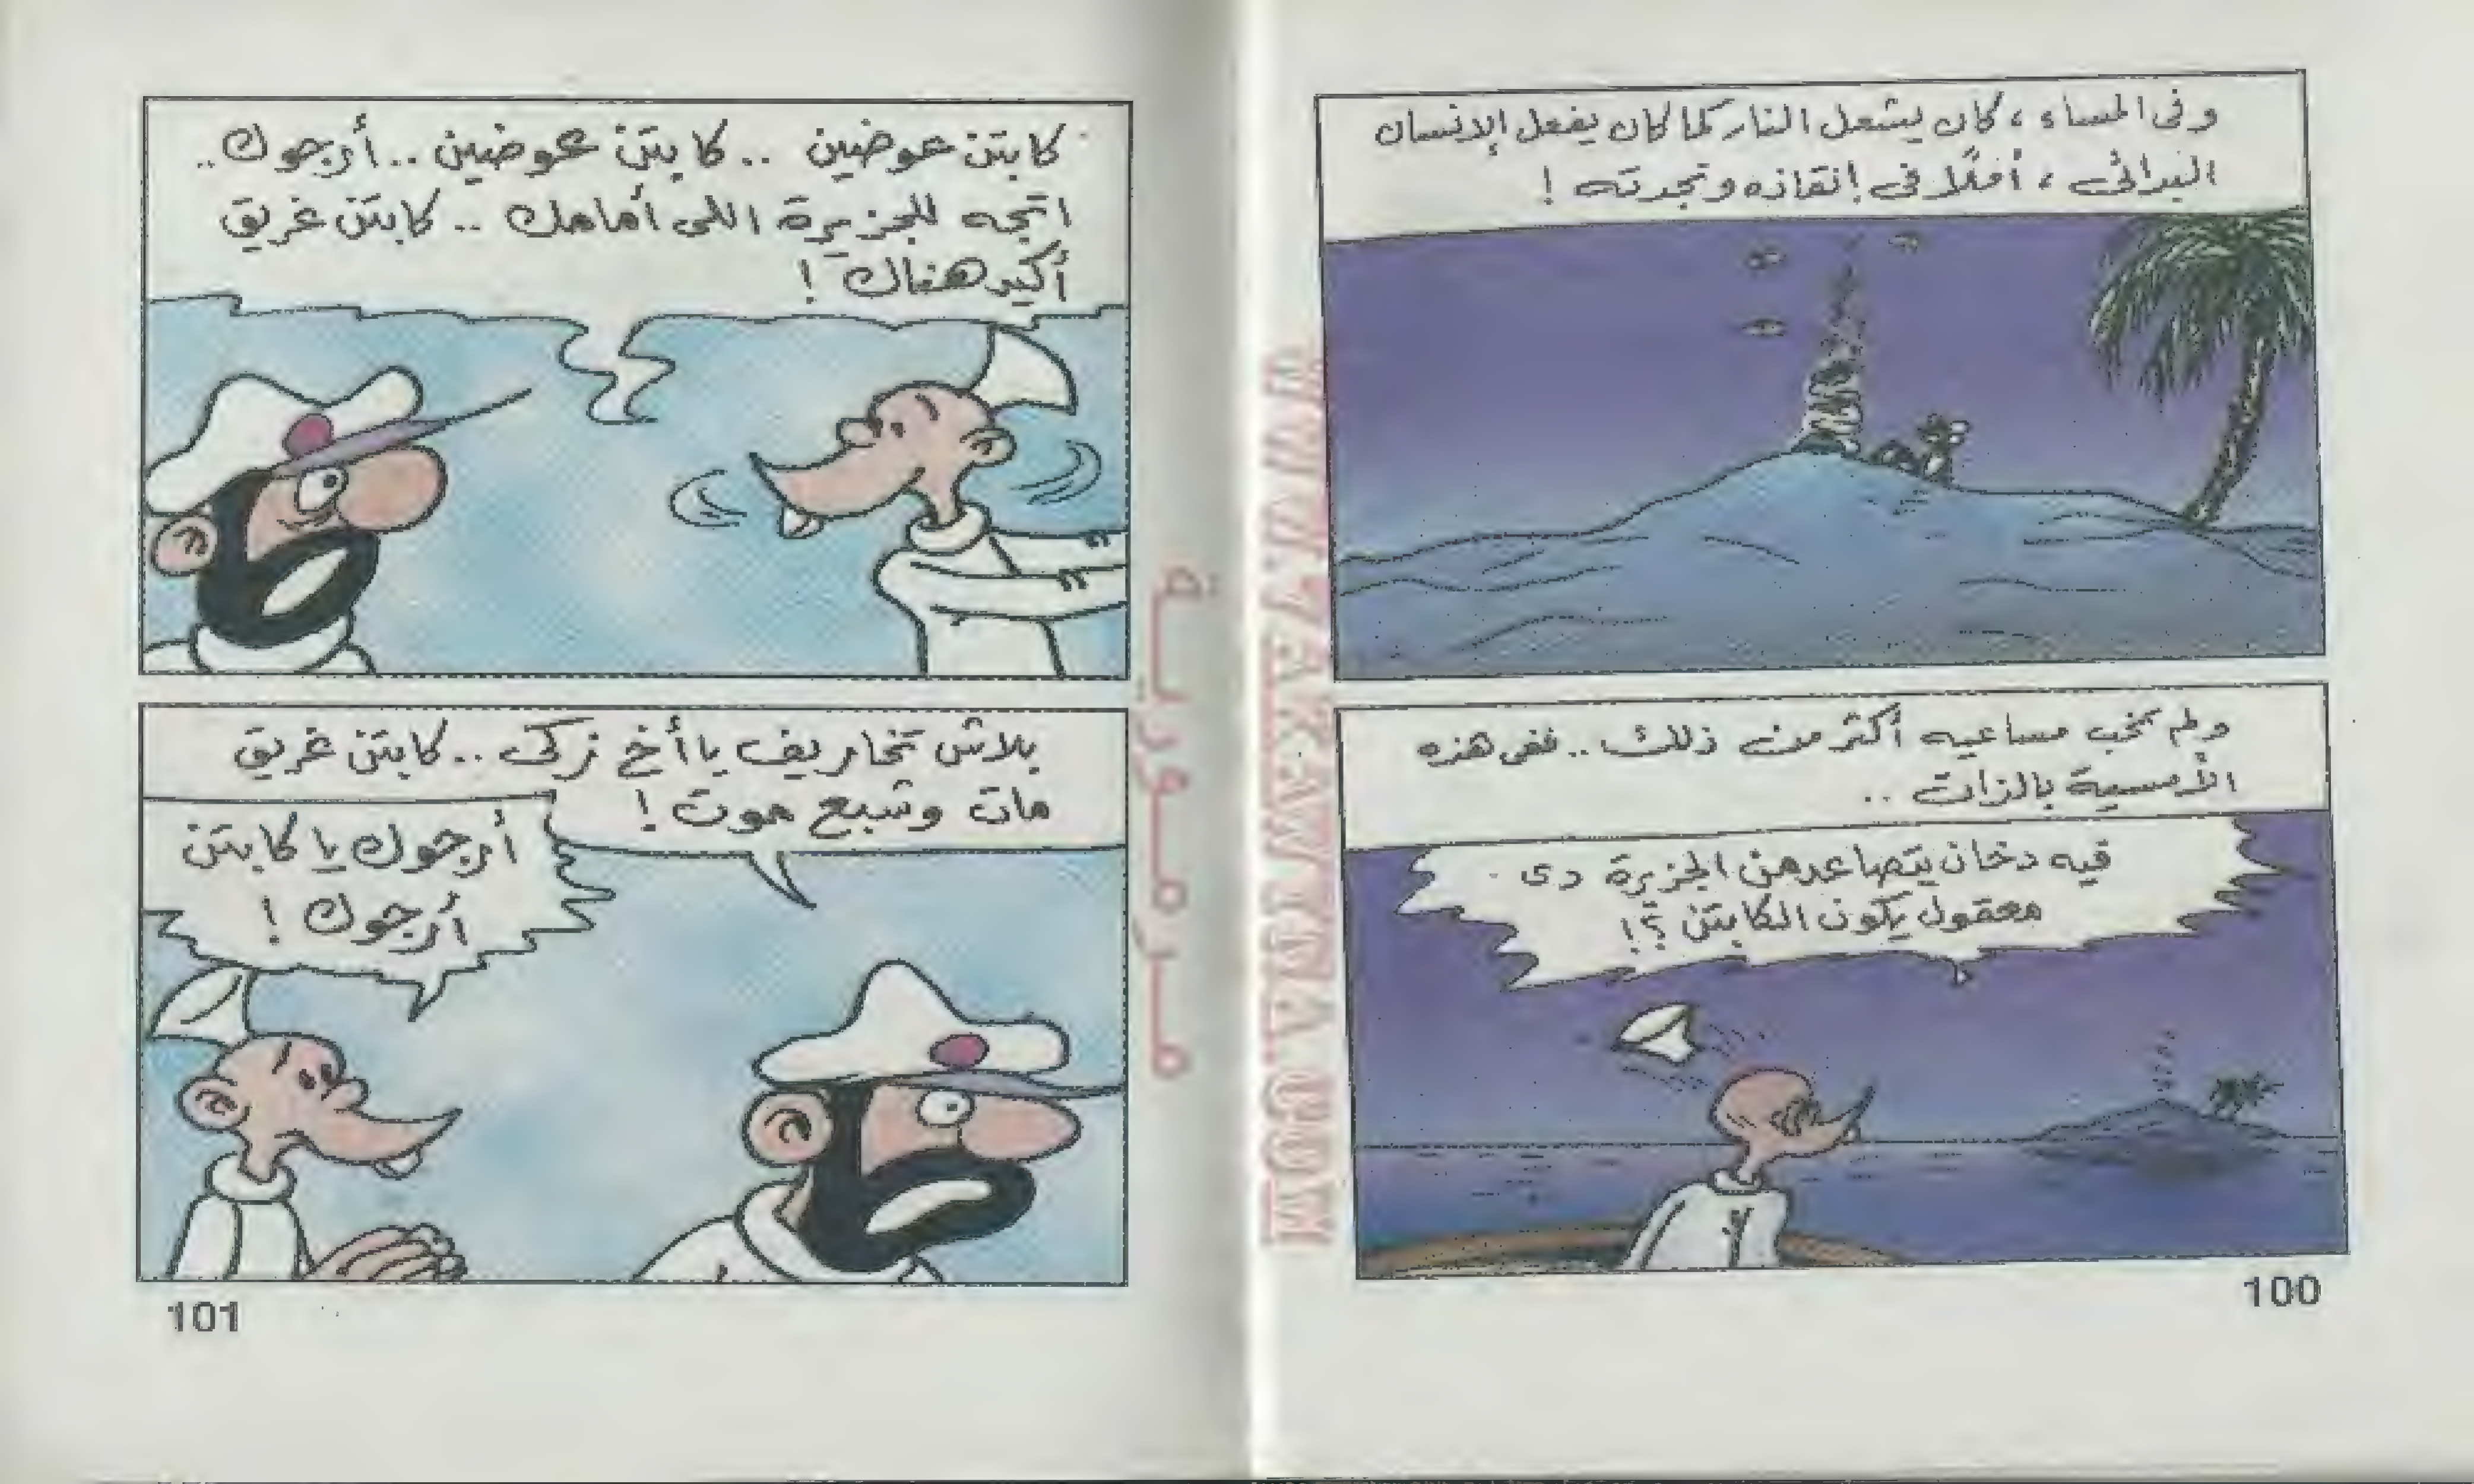 وفى المساء ، كان يشعل النار كما كان يفعل الإنسان
البدائى ، أملًا فى إنقاذه ونجدته !
ولم تخب مساعيه أكثر من ذلك .. ففى هذه
الأمسية بالذات ..
فيه دخان يتصاعد من الجزيرة دى
معقول يكون الكابتن ؟!
100
كابتن عوضين .. كابتن عوضين .. أرجوك ..
اتجه للجزيرة اللى أمامك .. كابتن غريق
أكيد هناك !
بلاش تخاريف يا أخ زكى .. كابتن غريق
مات وشبع موت !
أرجوك يا كابتن
أرجوك !
101